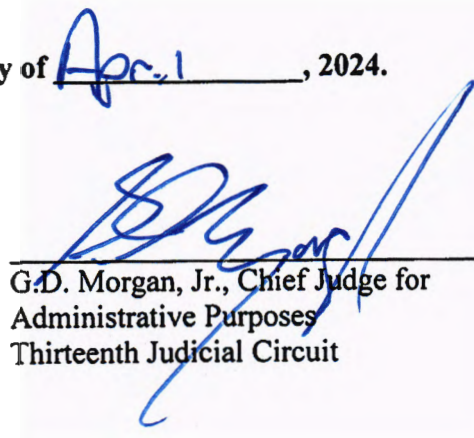 y of April, 2024.
G.D. Morgan, Jr., Chief Judge for
Administrative Purposes
Thirteenth Judicial Circuit